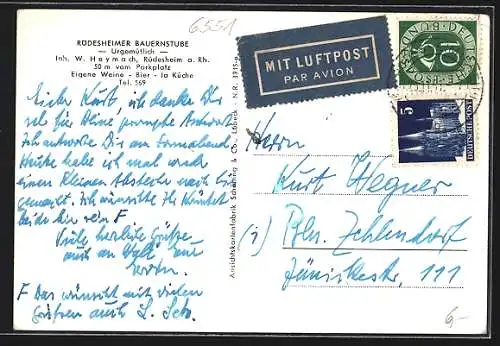 6551
RÜDESHEIMER BAUERNSTUBE
— Urgemütlich —
Inh. W. Heymach, Rüdesheim a. Rh.
50 m vom Parkplatz
Eigene Weine - Bier - la Küche
Tel. 569
Lieber Kurt, ich danke Dir
sehr für Deine prompte Antwort.
Ich antworte Dir am Sonnabend.
Heute habe ich mal
einen kleinen Abstecher nach
gemacht. Ich wünschte Ihr könntet
beide hier sein F
Viele herzliche Grüße
auch an
F Das wünscht mit vielen
Grüßen auch L.
Ansichtskartenfabrik Schöning & Co., Lübeck - N.R. 1315-a
MIT LUFTPOST
PAR AVION
DEUTSCHE BUNDESPOST
10
5
DEUTSCHE POST
Herrn
Kurt Wegner
(1) Bln. Zehlendorf
111
6,-